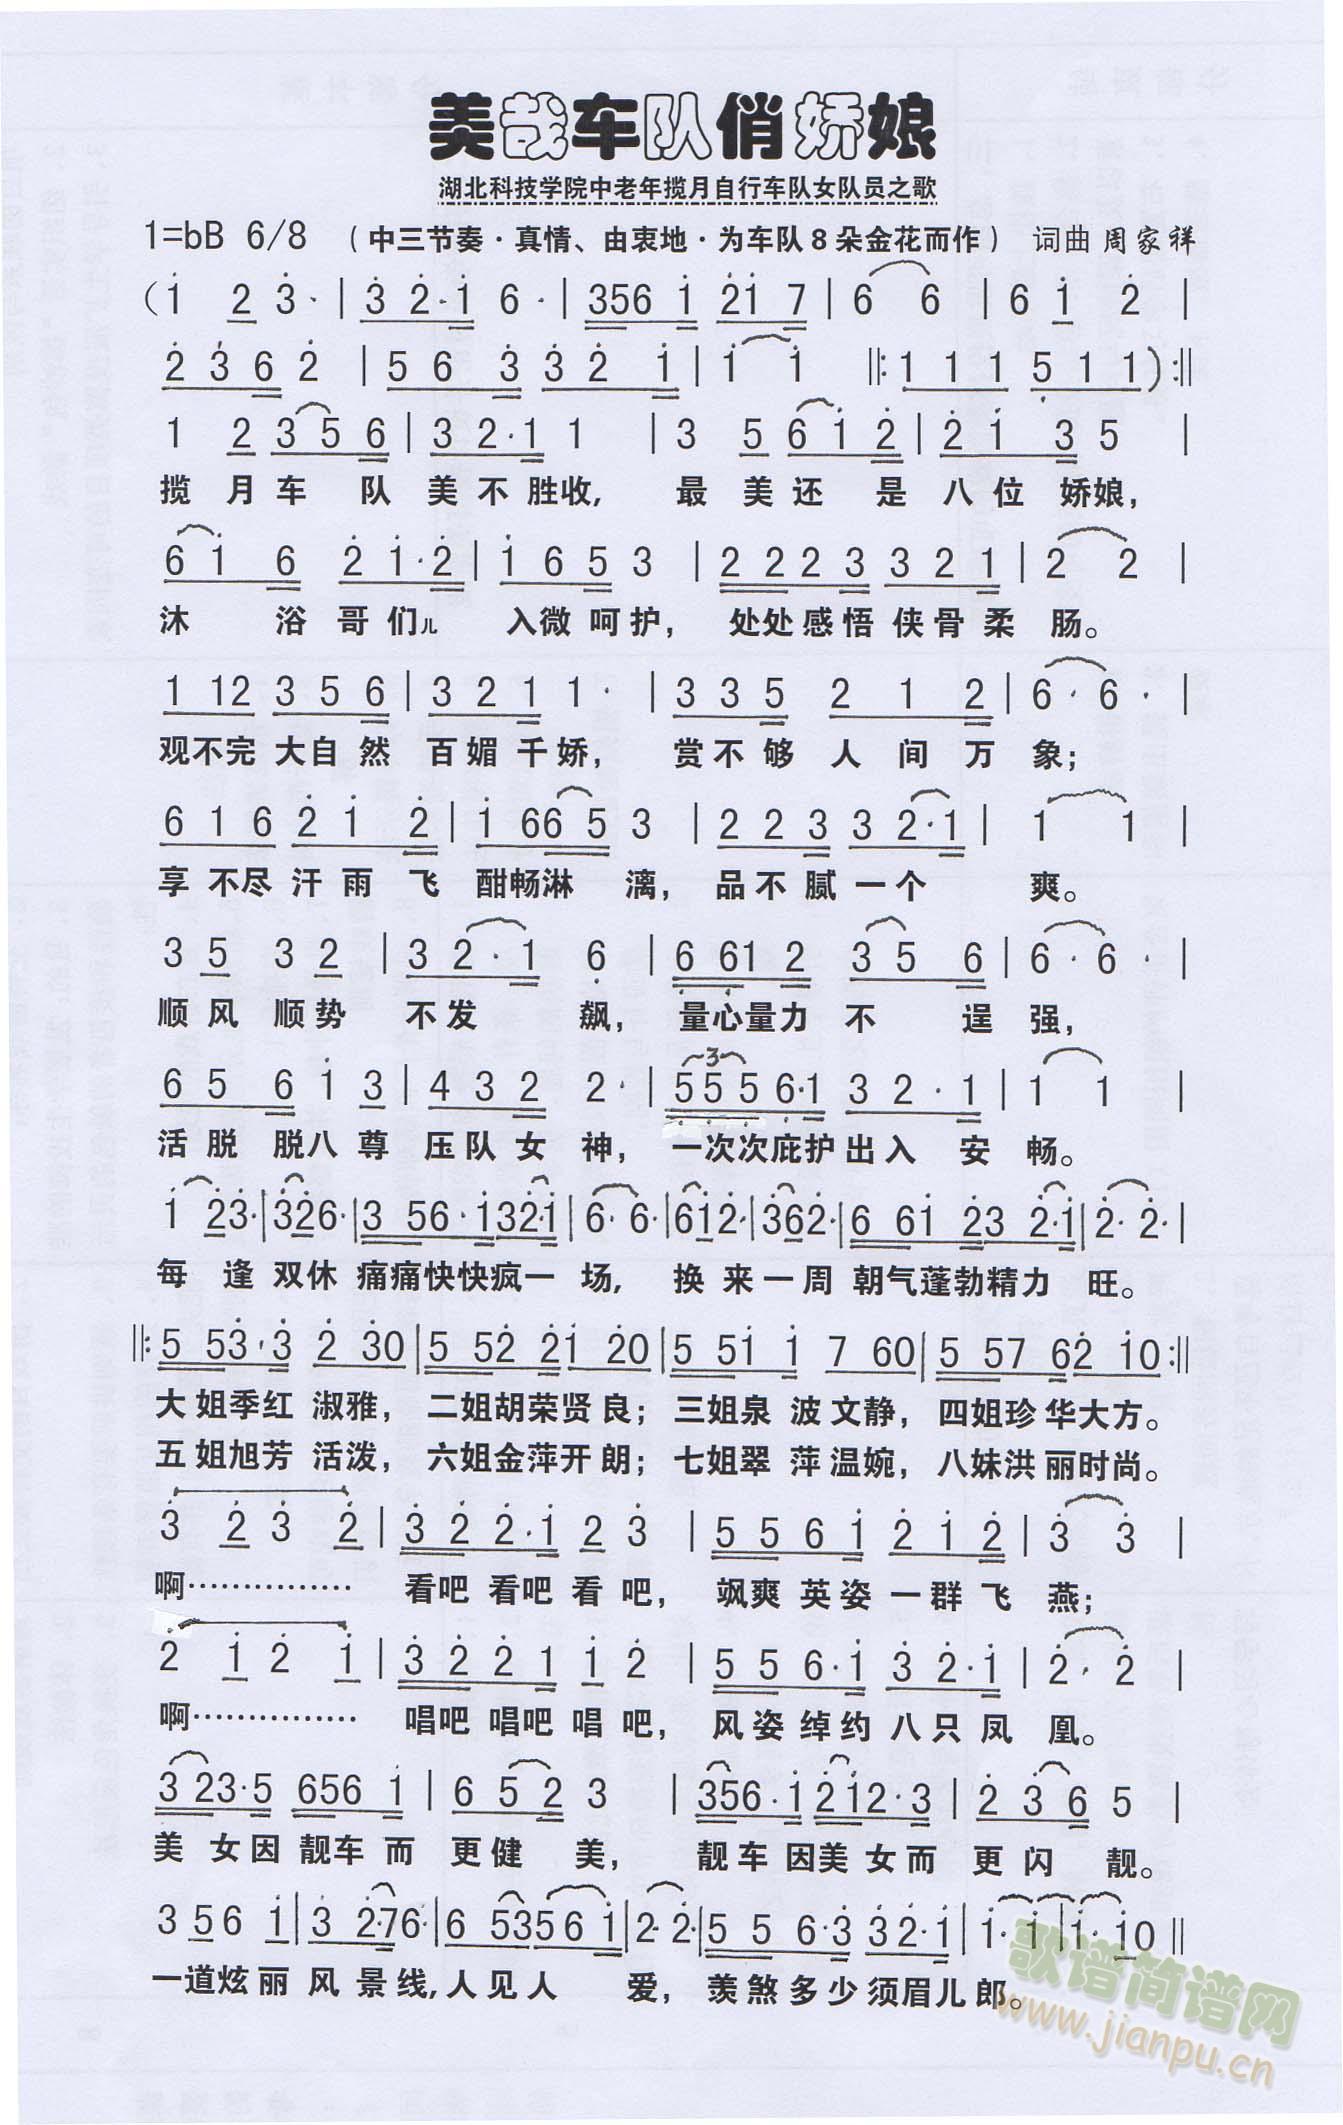 美哉车队俏娇娘
湖北科技学院中老年揽月自行车队女队员之歌
1=bB 6/8 （中三节奏·真情、由衷地·为车队8朵金花而作） 词曲 周家祥
(1 2 3· | 3 2·1 6· | 356 1 21 7 | 6 6 | 6 1 2 |
2 3 6 2 | 5 6 3 3 2 1 | 1 1 ‖: 1 1 1 5 1 1 ) :‖
1 2 3 5 6 | 3 2·1 1 | 3 5 6 1 2 | 2 1 3 5 |
揽月车 队 美不胜收, 最美还 是八位 娇娘,
6 1 6 2 1·2 | 1 6 5 3 | 2 2 2 3 3 2 1 | 2 2 |
沐 浴哥们儿 入微呵护, 处处感悟侠骨柔 肠。
1 12 3 5 6 | 3 2 1 1· | 3 3 5 2 1 2 | 6· 6· |
观不完大自然 百媚千娇, 赏不够 人间万 象;
6 1 6 2 1 2 | 1 66 5 3 | 2 2 3 3 2·1 | 1 1 |
享不尽汗雨飞 酣畅淋 漓, 品不腻一个 爽。
3 5 3 2 | 3 2·1 6 | 6 661 2 3 5 6 | 6· 6· |
顺风 顺势 不发 飙, 量心量力不 逞 强,
6 5 6 1 3 | 4 3 2 2· | 5 5 5 6·1 3 2·1 | 1 1 |
活脱 脱八尊 压队女神, 一次次庇护出入安 畅。
1 23· | 326· | 3 56·1 32·1 | 6· 6· | 612· | 362· | 6 661 23 2·1 | 2· 2· |
每 逢 双休 痛痛快快疯一 场, 换来一周 朝气蓬勃精力 旺。
‖: 5 53·3 2 30 | 5 52 21 20 | 5 51 1 7 60 | 5 57 62 10 :‖
大姐季红 淑雅, 二姐胡荣贤良; 三姐泉 波文静, 四姐珍华大方。
五姐旭芳 活泼, 六姐金萍开朗; 七姐翠 萍温婉, 八妹洪丽时尚。
3 2 3 2 | 3 2 2·1 2 3 | 5 5 6 1 2 1 2 | 3 3 |
啊…………… 看吧 看吧 看吧, 飒爽英姿一群飞 燕;
2 1 2 1 | 3 2 2 1 1 2 | 5 5 6·1 3 2·1 | 2· 2 |
啊…………… 唱吧 唱吧 唱吧, 风姿绰约八只凤 凰。
3 23·5 656 1 | 6 5 2 3 | 356·1 212·3 | 2 3 6 5 |
美 女因靓车而 更健 美, 靓车因美女而 更闪 靓。
3 56 1 | 3 2·76· | 6 53 5 6 1 | 2· 2· | 5 5 6·3 3 2·1 | 1· 1· | 1· 10 ‖
一道炫丽 风景线,人见人 爱, 羡煞多少须眉儿郎。
歌谱简谱网
www.jianpu.cn